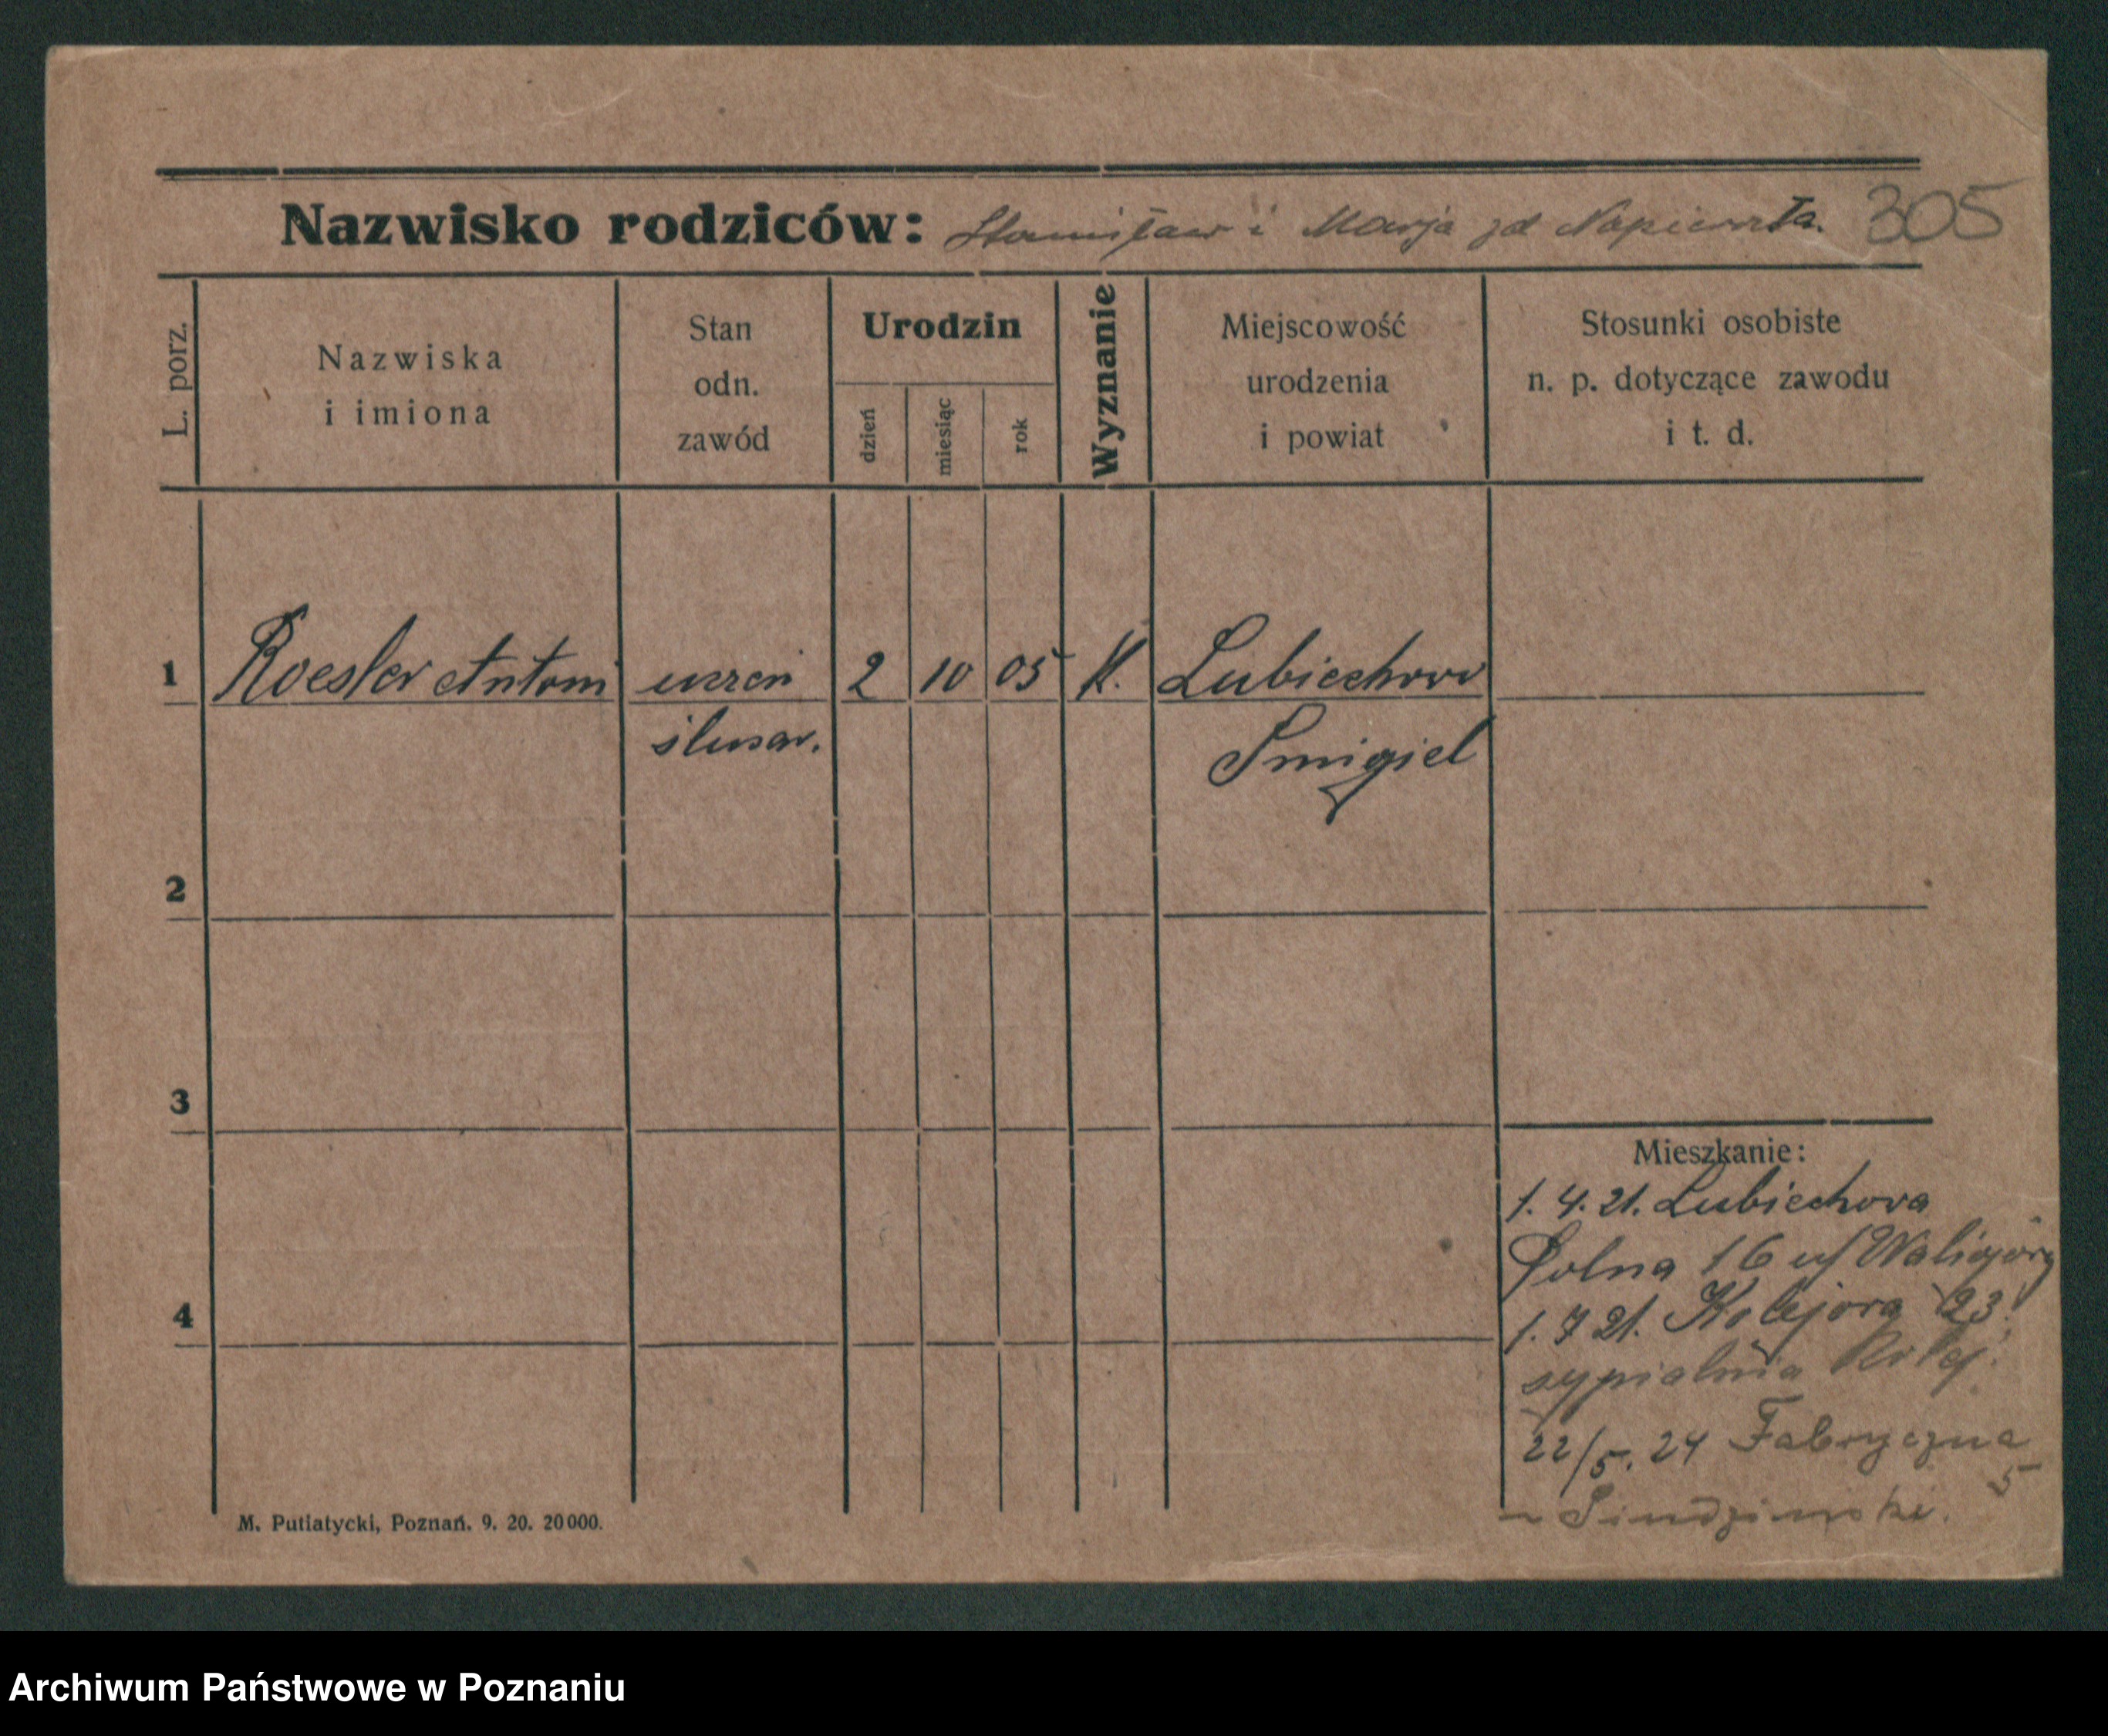 Nazwisko rodziców: Stanisław i Marja zd 305
L. porz.
Nazwiska
i imiona
Stan
odn.
zawód
Urodzin
dzień
miesiąc
rok
Wyznanie
Miejscowość
urodzenia
i powiat
Stosunki osobiste
n. p. dotyczące zawodu
i t. d.
1 Roesler Antoni uczeń 2 10 05 K. Lubiechowo
ślusar. Śmigiel
2
3
4
Mieszkanie:
1. 4. 21. Lubiechowa
Polna 16 u/ Waligóry
1. 7 21. Kolejowa 23.
sypialnia Kolej.
22/5. 24 Fabryczna
5
M. Putiatycki, Poznań. 9. 20. 20000.
Archiwum Państwowe w Poznaniu